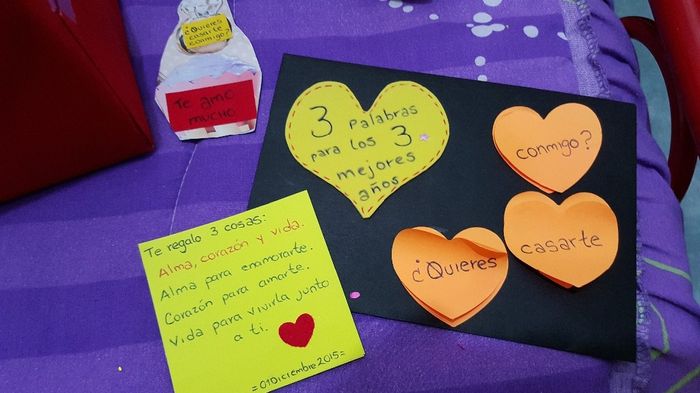 ¿Quieres
casarte
conmigo?
Te amo
mucho
3 Palabras
para los 3
mejores
años.
conmigo?
¿Quieres
casarte
Te regalo 3 cosas:
Alma, corazón y vida.
Alma para enamorarte.
Corazón para amarte.
Vida para vivirla junto
a ti.
=01Diciembre2015=